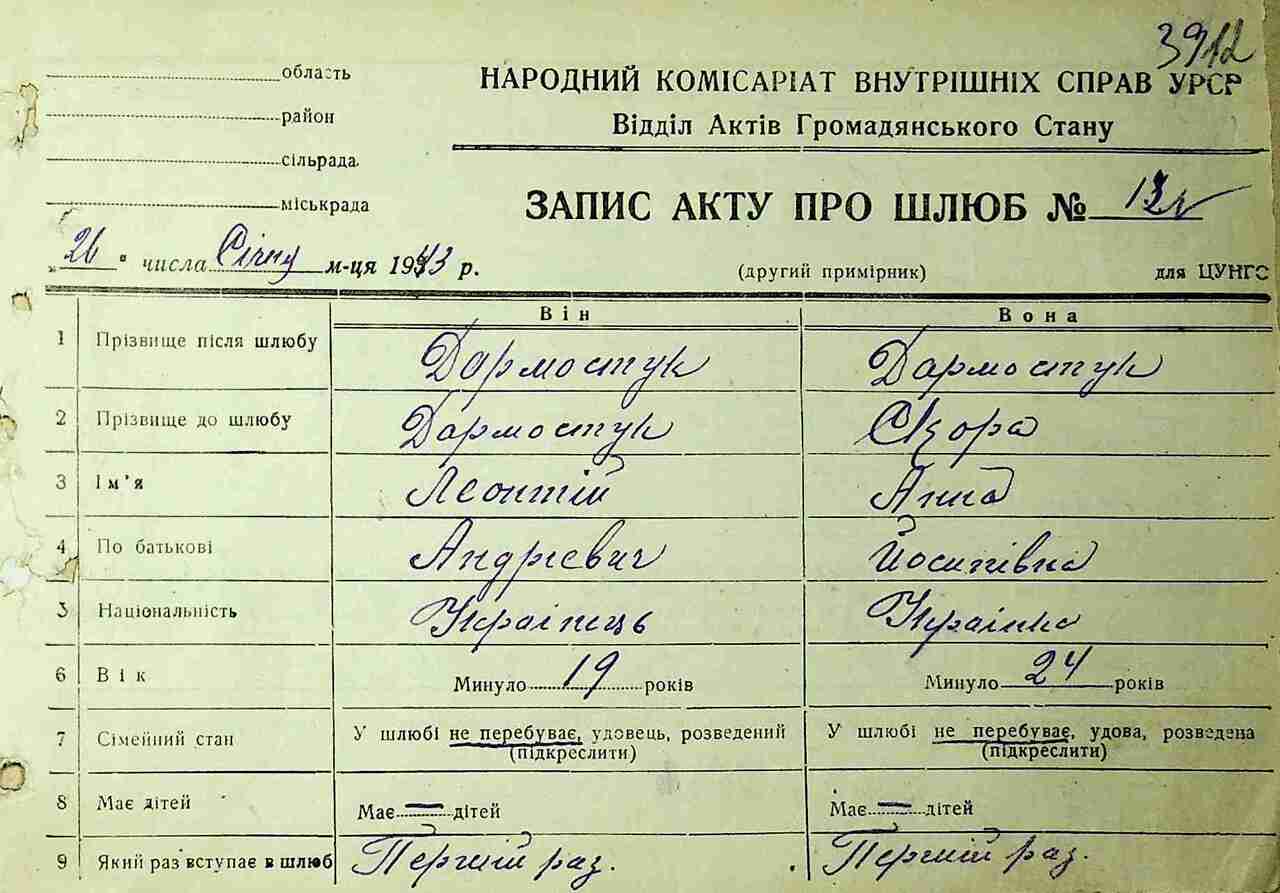 3912
область
район
сільрада
міськрада
НАРОДНИЙ КОМІСАРІАТ ВНУТРІШНІХ СПРАВ УРСР
Відділ Актів Громадянського Стану
ЗАПИС АКТУ ПРО ШЛЮБ №
„26" числа Січня м-ця 1943 р.
(другий примірник) для ЦУНГО
Він Вона
1 Прізвище після шлюбу Дармостук Дармостук
2 Прізвище до шлюбу Дармостук
3 Ім'я Леонтій Анна
4 По батькові Андрієвич Йосипівна
5 Національність Українець Українка
6 Вік Минуло 19 років Минуло 24 років
7 Сімейний стан У шлюбі не перебуває, удовець, розведений У шлюбі не перебуває, удова, розведена
(підкреслити) (підкреслити)
8 Має дітей Має — дітей Має — дітей
9 Який раз вступає в шлюб Перший раз. Перший раз.